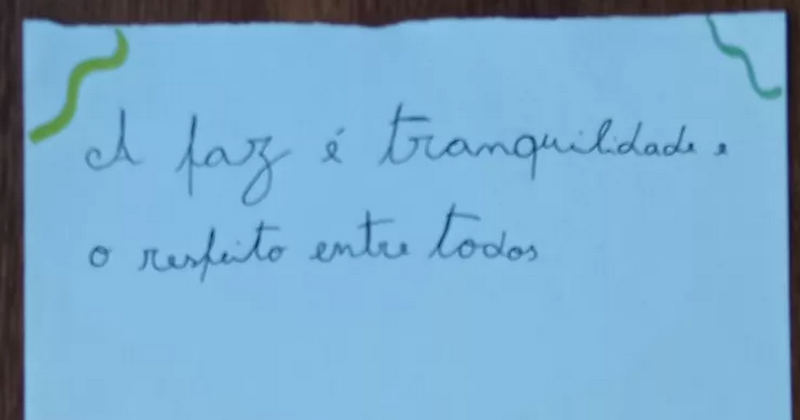 A paz é tranquilidade e
o respeito entre todos